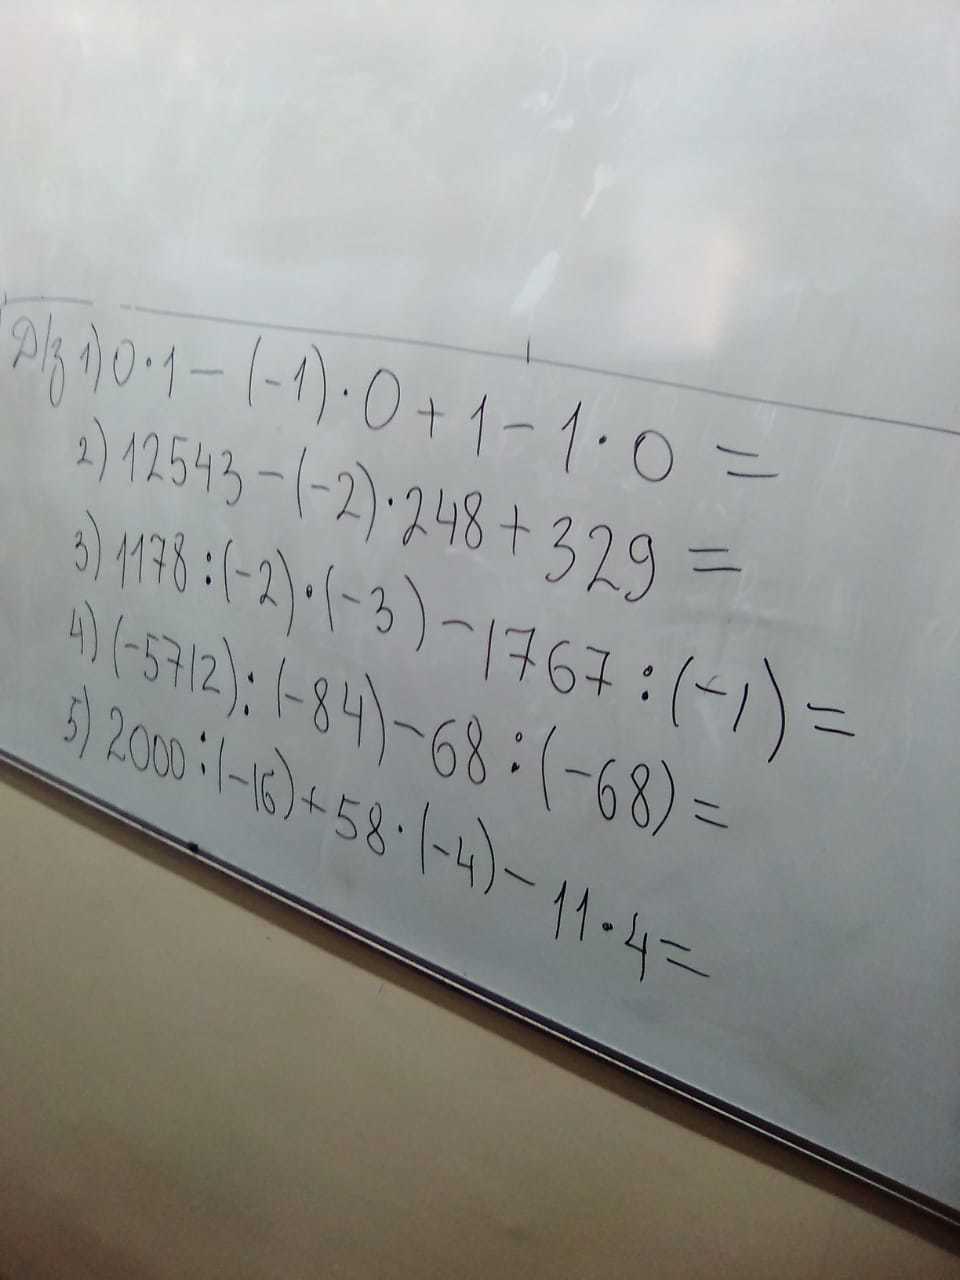 Д/з 1) 0·1 - (-1)·0 + 1 - 1·0 =
2) 12543 - (-2)·248 + 329 =
3) 1178 : (-2)·(-3) - 1767 : (-1) =
4) (-5712) : (-84) - 68 : (-68) =
5) 2000 : (-16) + 58·(-4) - 11·4 =